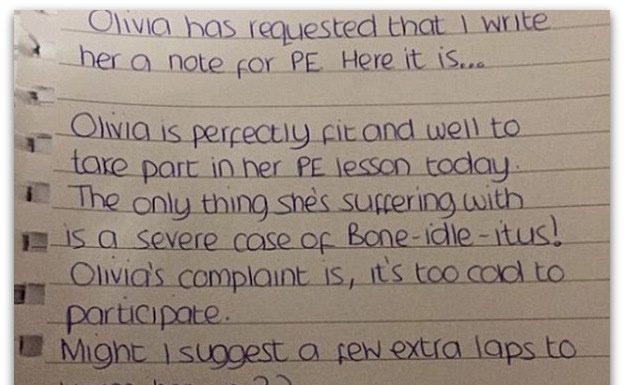 Olivia has requested that I write
her a note for PE Here it is...
Olivia is perfectly fit and well to
take part in her PE lesson today.
The only thing she's suffering with
is a severe case of Bone-idle-itus!
Olivia's complaint is, it's too cold to
participate.
Might I suggest a few extra laps to